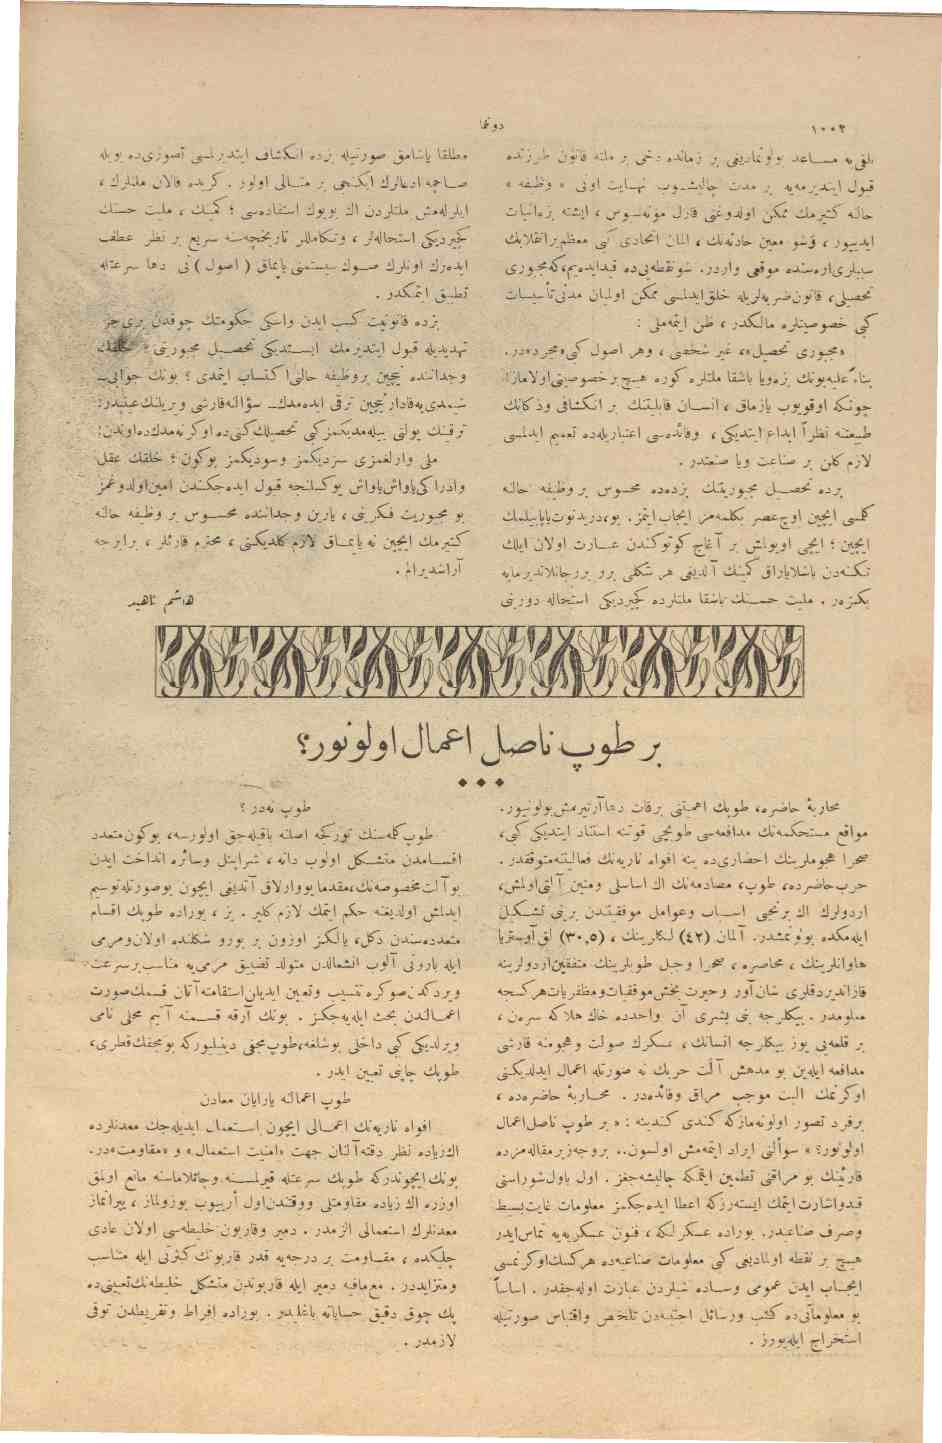 ١٠٠٢
دوننما
تلقی‌یه مساعد بولونمادیغی بر زمانده دخی بر ملته قانون طرزنده
قبول ایتدیرمه‌یه بر مدت چالیشوب نهایت اونی « وظیفه »
حالنه کتیرمك ممکن اولدوغنی قارل مونته‌سوس ، ایشته بزه اثبات
ایدییور ، وشو معین حادثه‌نك ، المان اتحادی کبی معظم بر انقلابك
سببلری آره‌سنده موقعی واردر. شو نقطه‌یی‌ده قیدایده‌یم،که مجبوری
تحصیلی، قانون ضربه‌لریله خلق ایدلمسی ممکن اولمیان مدنی تأسیسات
کبی خصوصیتلره مالکدر ، ظن ایتمه‌ملی :
«مجبوری تحصیل»، غیر شخصی ، وهر اصول کبی «مجرد»در.
بناءً علیه بونك بزه ویا باشقا ملتلره کوره هیچ بر خصوصیتی اولاماز.
چونکه اوقویوب یازماق ، انسان قابلیتنك بر انکشافی وذکانك
طبیعتنه نظراً ابداع ایتدیکی ، وفائده‌سی اعتباریله‌ده تعمیم ایدلمسی
لازم کلن بر صناعت ویا صنعتدر .
بزده تحصیل مجبوریتنك بزده‌ده محسوس بر وظیفه حالنه
کلمسی ایچین اوچ عصر بکلمه‌مز ایجاب ایتمز. بو، دریدنوت یاپابیلمك
ایچین ؛ ایچی اویولمش بر آغاج کوتوکندن عبارت اولان ایلك
تکنه‌دن باشلایاراق کمینك آلدیغی هر شکلی برر برر جانلاندیرمایه
بکزر . ملیت حسنك باشقا ملتلرده کچیردیکی استحاله دورینی
مطلقا یاشامق صورتیله بزده انکشاف ایتدیرلمسی تصوری‌ده بویله
صاچمه ادعالرك ایکنجی بر مثالی اولور . کریده قالان ملتلرك ،
ایلریله‌مش ملتلردن اك بویوك استفاده‌سی ؛ کمینك ، ملیت حسنك
کچیردیکی استحاله‌لر ، وتکامللر تاریخچه‌سنه سریع بر نظر عطف
ایده‌رك اونلرك صوك سیستمنی یاپماق ( اصول ) نی دها سرعتله
تطبیق ایتمکدر .
بزده قانونیت کسب ایدن واسکی حکومتك چوقدن بری جزا
تهدیدیله قبول ایتدیرمك ایستدیکی تحصیل مجبوریتی ، خلقك
وجداننده نیچین بر وظیفه حالنی اکتساب ایتمدی ؟ بونك جوابی
شیمدی‌یه قادار نیچین ترقی ایده‌مدك سؤالنه قارشی ویریلنك عینیدر:
ترقینك یولنی بیله‌مدیکمز کبی تحصیلك کنی‌ده اوکرنه‌مدك‌ده اوندن!
ملی وارلغمزی سزدیکمز وسودیکمز بوکون ؛ خلقك عقل
وادراکی یاواش یاواش یوکسلنجه قبول ایده‌جکندن امین اولدوغمز
بو مجبوریت فکرینی ، یارین وجداننده محسوس بر وظیفه حالنه
کتیرمك ایچین نه یاپماق لازم کلدیکنی ، محترم قارئلر ، برابرجه
آراشدیرالم .
هاشم ناهید
بر طوپ ناصل اعمال اولونور؟
محاربهٔ حاضره، طوپك اهمیتنی برقات دها آرتیرمش بولونیور.
مواقع مستحکمه‌نك مدافعه‌سی طوپجی قوتنه استناد ایتدیکی کبی،
صحرا هجوملرینك احضاری‌ده ینه افواه ناریه‌نك فعالیتنه متوقفدر .
حرب حاضرده، طوپ، مصادمه‌نك اك اساسلی ومتین آلتی اولمش،
اردولرك اك برنجی اسباب وعوامل موفقیتندن برینی تشکیل
ایله‌مکده بولونمشدر. آلمان (٤٢) لیکلرینك ، (٣٠,٥) لق آوستریا
هاوانلرینك ، محاصره ، صحرا وجبل طوپلرینك متفقین اردولرینه
قازاندیردقلری شان آور وحیرت بخش موفقیات ومظفریات هرکسجه
معلومدر . بیکلرجه بنی بشری آن واحدده خاك هلاکه سرن ،
بر قلعه‌یی یوز بیکلرجه انسانك ، عسکرك صولت وهجومنه قارشی
مدافعه ایلین بو مدهش آلت حربك نه صورتله اعمال ایدلدیکنی
اوکرنمك البت موجب مراق وفائده‌در . محاربهٔ حاضره‌ده ،
برفرد تصور اولونه‌مازکه کندی کندینه : « بر طوپ ناصل اعمال
اولونور؟ » سؤالنی ایراد ایتمه‌مش اولسون.. بروجه‌زیر مقاله‌مزده
قارئینك بو مراقنی تطمین ایتمکه چالیشه‌جغز . اول باول شوراسنی
قیدواشارت ایتمك ایسته‌رزکه اعطا ایده‌جکمز معلومات غایت بسیط
وصرف صناعیدر. بوراده عسکرلکه ، فنون عسکریه‌یه تماس ایدر
هیچ بر نقطه اولمادیغی کبی معلومات صناعیه‌ده هرکسك اوکرنمسی
ایجاب ایدن عمومی وساده شیلردن عبارت اوله‌جقدر . اساساً
بو معلوماتی‌ده کتب ورسائل اجنبیه‌دن تلخیص واقتباس صورتیله
استخراج ایله‌یورز .
طوپ نه‌در ؟
طوپ کله‌سنك تورکجه اصلنه باقیله‌جق اولورسه، بوکون متعدد
اقسامدن متشکل اولوب دانه ، شراپنل وسائره انداخت ایدن
بو آلت مخصوصه‌نك، مقدما یووارلاق آتدیغی ایچون بوصورتله توسیم
ایدلمش اولدیغنه حکم ایتمك لازم کلیر . بز ، بوراده طوپك اقسام
متعدده‌سندن دکل، یالکز اوزون بر بورو شکلنده اولان ومرمی
ایله بارونی آلوب اشتعالدن متولد تضییق مرمی‌یه مناسب بر سرعت
ویردکدن صوکره تثبیت وتعیین ایدیلن استقامته آتان قسمك صورت
اعمالندن بحث ایله‌یه‌جکز . بونك آرقه قسمنه آتیم محلی نامی
ویرلدیکی کبی داخلی بوشلغه، طوپ مجفی دینلیورکه بو مجفك قطری،
طوپك چاپنی تعیین ایدر .
طوپ اعمالنه یارایان معادن
افواه ناریه‌نك اعمالی ایچون استعمال ایدیله‌جك معدنلرده
اك زیاده نظر دقته آلنان جهت «امنیت استعمال» و «مقاومت»در.
بونك ایچوندرکه طوپك سرعتله قیرلمسنه وچاتلاماسنه مانع اولمق
اوزره اك زیاده مقاومتلی ووقتندن اول آرییوب بوزولماز ، ییرانماز
معدنلرك استعمالی الزمدر . دمیر وقاربون خلیطه‌سی اولان عادی
چلیکده ، مقاومت بر درجه‌یه قدر قاربونك کثرتی ایله متناسب
ومتزایددر . مع‌مافیه دمیر ایله قاربوندن متشکل خلیطه‌نك تعیینی‌ده
پك چوق دقیق حساباته باغلیدر . بوراده افراط وتفریطدن توقی
لازمدر .